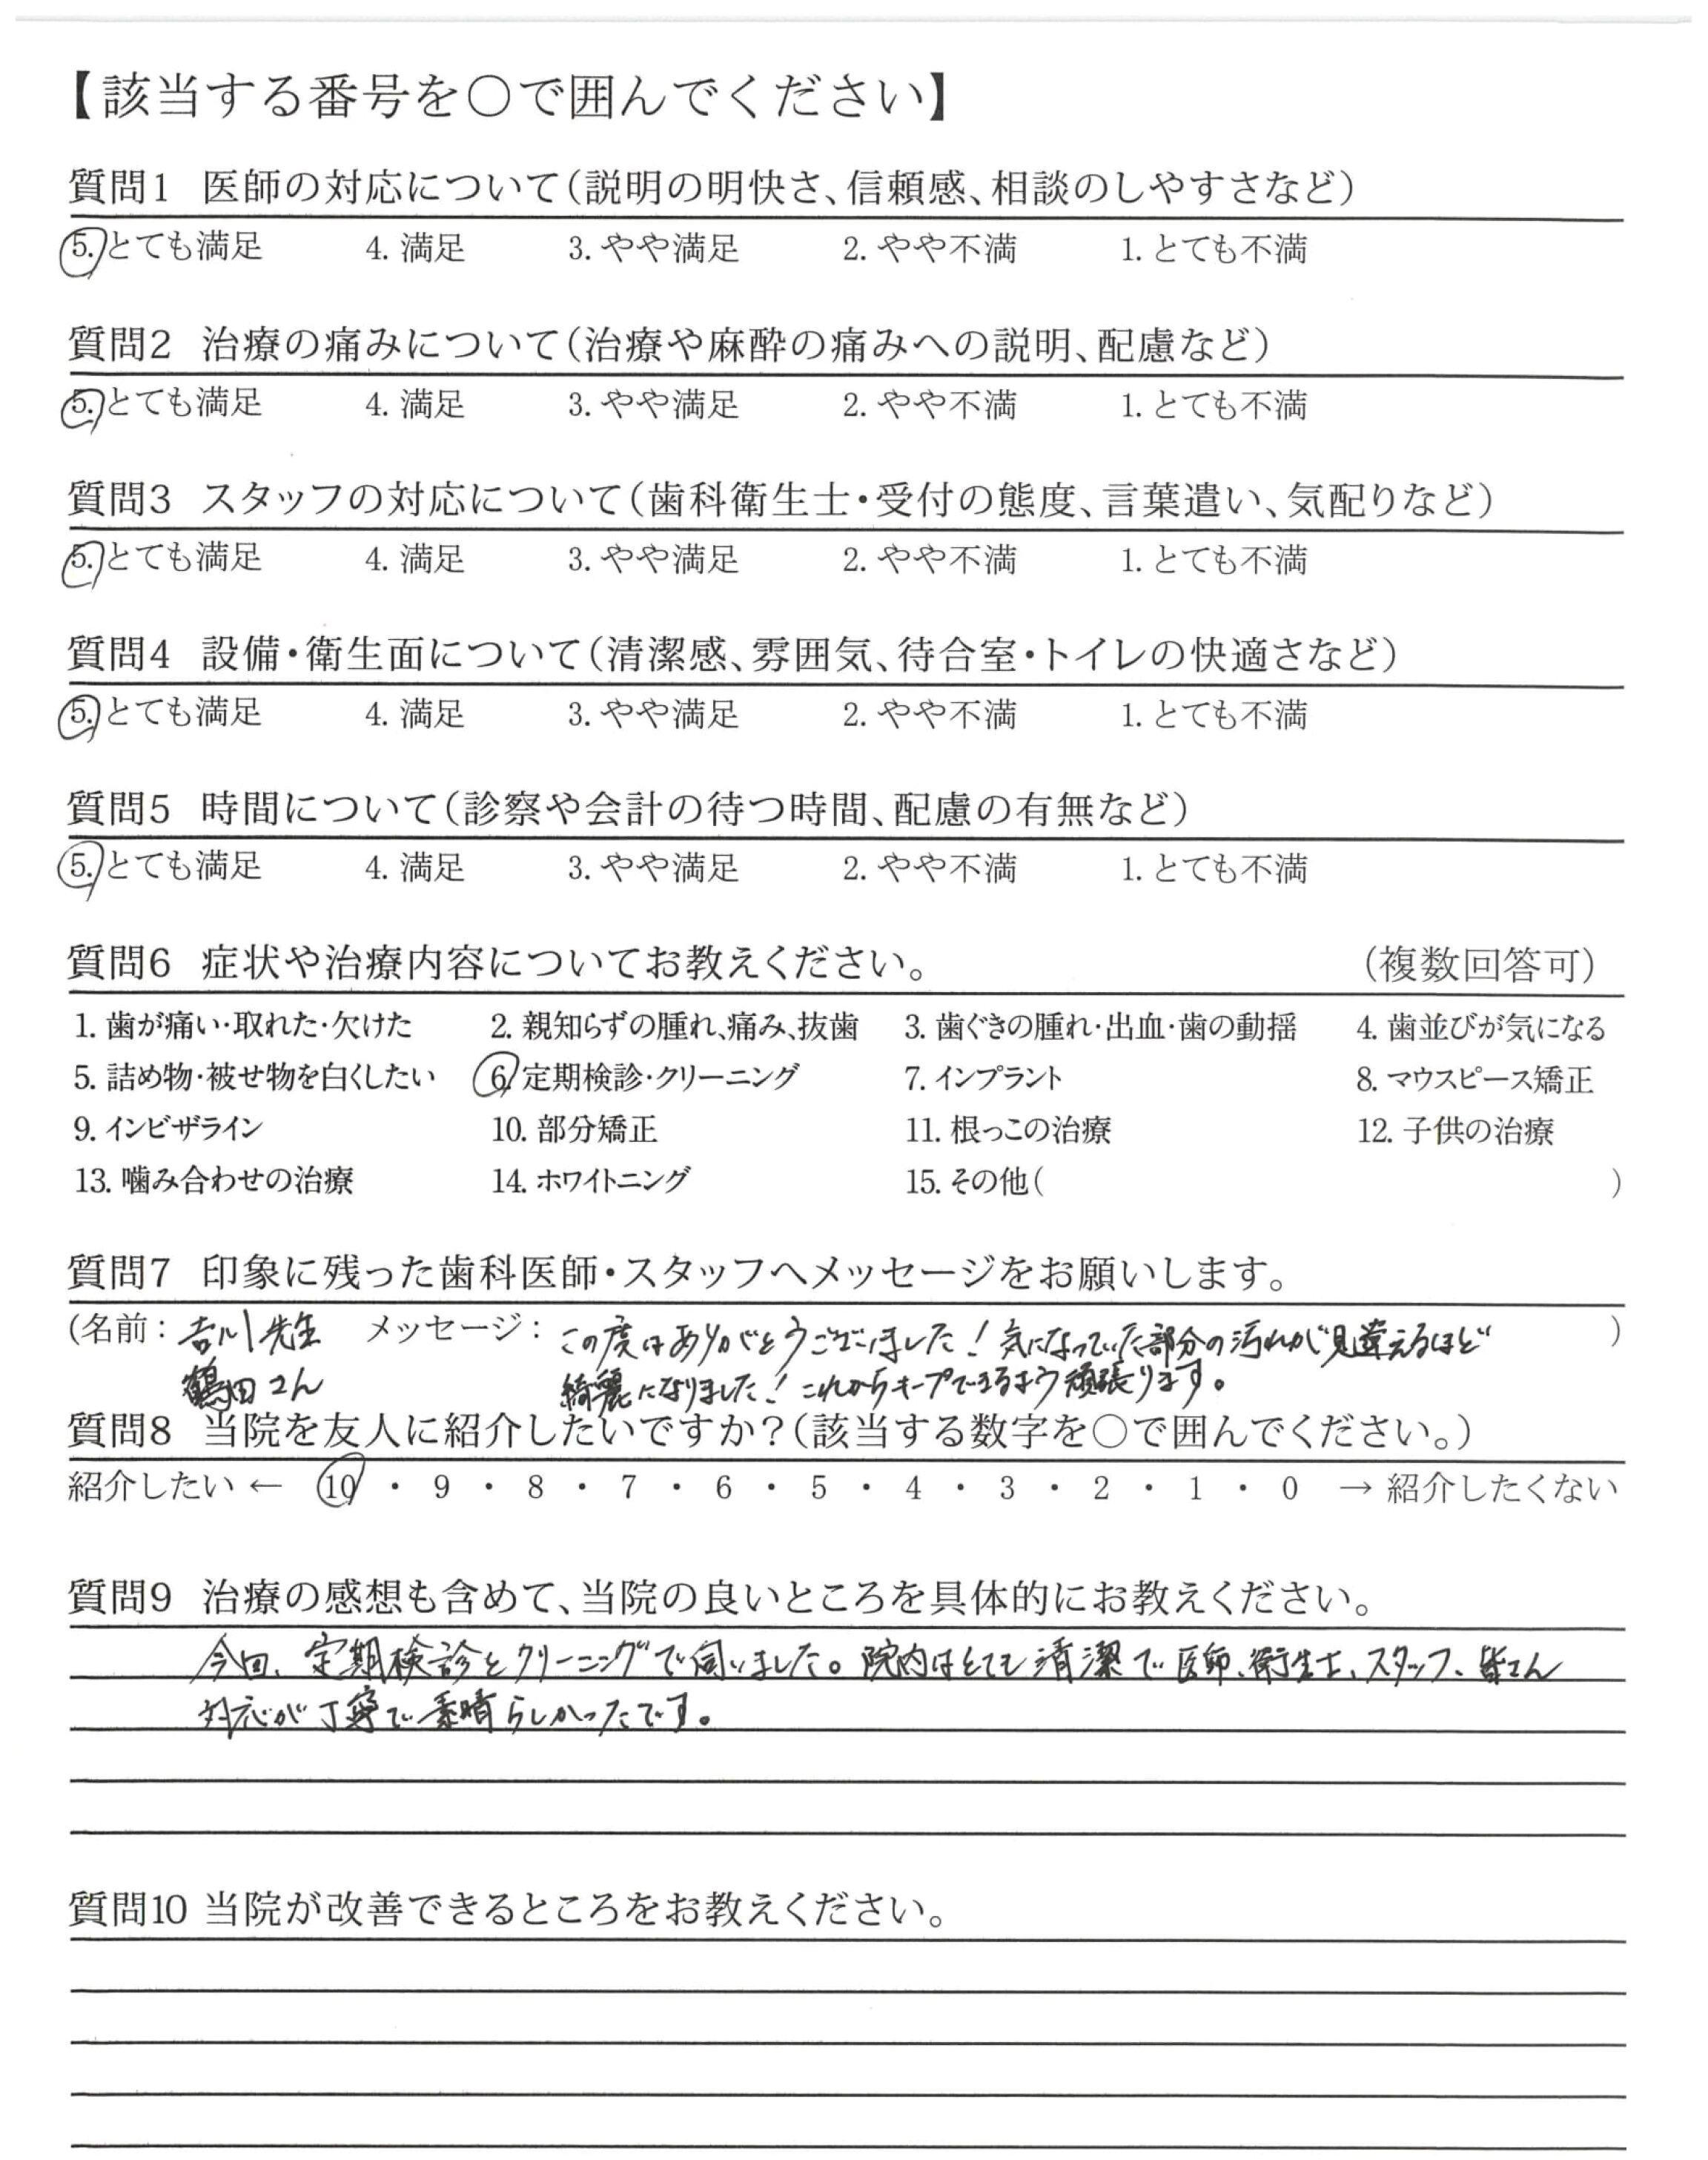 【該当する番号を○で囲んでください】
質問1 医師の対応について(説明の明快さ、信頼感、相談のしやすさなど)
5. とても満足 4. 満足 3. やや満足 2. やや不満 1. とても不満
質問2 治療の痛みについて(治療や麻酔の痛みへの説明、配慮など)
5. とても満足 4. 満足 3. やや満足 2. やや不満 1. とても不満
質問3 スタッフの対応について(歯科衛生士・受付の態度、言葉遣い、気配りなど)
5. とても満足 4. 満足 3. やや満足 2. やや不満 1. とても不満
質問4 設備・衛生面について(清潔感、雰囲気、待合室・トイレの快適さなど)
5. とても満足 4. 満足 3. やや満足 2. やや不満 1. とても不満
質問5 時間について(診察や会計の待つ時間、配慮の有無など)
5. とても満足 4. 満足 3. やや満足 2. やや不満 1. とても不満
質問6 症状や治療内容についてお教えください。 (複数回答可)
1. 歯が痛い・取れた・欠けた 2. 親知らずの腫れ、痛み、抜歯 3. 歯ぐきの腫れ・出血・歯の動揺 4. 歯並びが気になる
5. 詰め物・被せ物を白くしたい 6. 定期検診・クリーニング 7. インプラント 8. マウスピース矯正
9. インビザライン 10. 部分矯正 11. 根っこの治療 12. 子供の治療
13. 噛み合わせの治療 14. ホワイトニング 15. その他( )
質問7 印象に残った歯科医師・スタッフへメッセージをお願いします。
(名前: 吉川先生 メッセージ: この度はありがとうございました!気になっていた部分の汚れが見違えるほど )
鶴田さん 綺麗になりました!これからキープできるよう頑張ります。
質問8 当院を友人に紹介したいですか?(該当する数字を○で囲んでください。)
紹介したい ← 10 ・ 9 ・ 8 ・ 7 ・ 6 ・ 5 ・ 4 ・ 3 ・ 2 ・ 1 ・ 0 → 紹介したくない
質問9 治療の感想も含めて、当院の良いところを具体的にお教えください。
今回、定期検診とクリーニングで伺いました。院内はとても清潔で医師、衛生士、スタッフ、皆さん
対応が丁寧で素晴らしかったです。
質問10 当院が改善できるところをお教えください。